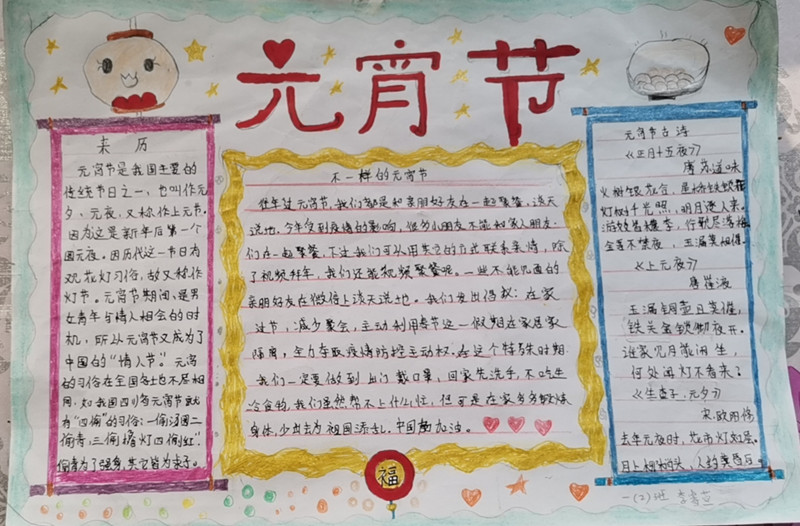 元宵节
来历
元宵节是我国主要的
传统节日之一，也叫作元
夕、元夜，又称作上元节。
因为这是新年后第一个
圆元夜。因历代这一节日有
观花灯习俗，故又称作
灯节。元宵节期间，是男
女青年与情人相会的时
机，所以元宵节又成为了
中国的“情人节”。元宵
的习俗在全国各土也不尽相
同，如我国四川各元宵节就
有“四偷”的习俗：一偷汤圆二
偷青，三偷檐灯四偷红”.
不一样的元宵节
往年过元宵节，我们都是和亲朋好友在一起聚餐，谈天
说地，今年受到疫情的影响，很多小朋友不能和家人朋友
们在一起聚餐，不过我们可以用其它的方式联系亲情，除
了视频拜年，我们还能视频聚餐呢。一些不能见面的
亲朋好友在微信上谈天说地。我们发出倡议：在家
过节，减少聚会，主动利用春节这一假期在家居家
隔离，全力争取疫情防控主动权。在这个特殊时期.
我们一定要做到出门戴口罩，回家先洗手，不吃生
冷食物，我们虽然帮不上什么忙，但可是在家多多锻炼
身体，少出去为祖国添乱，中国加油。
元宵节古诗
《正月十五夜》
唐 苏道味
火树银花合，星桥铁锁开
灯树千光照，明月逐人来。
游妓皆穠李，行歌尽落梅
金吾不禁夜，玉漏莫相催。
《上元夜》
唐 崔液
玉漏铜壶且莫催，
铁关金锁彻夜开。
谁家见月能闲坐，
何处闻灯不看来？
《生查子·元夕》
宋 欧阳修
去年元夜时，花市灯如昼。
月上柳梢头，人约黄昏后
福
一(2)班